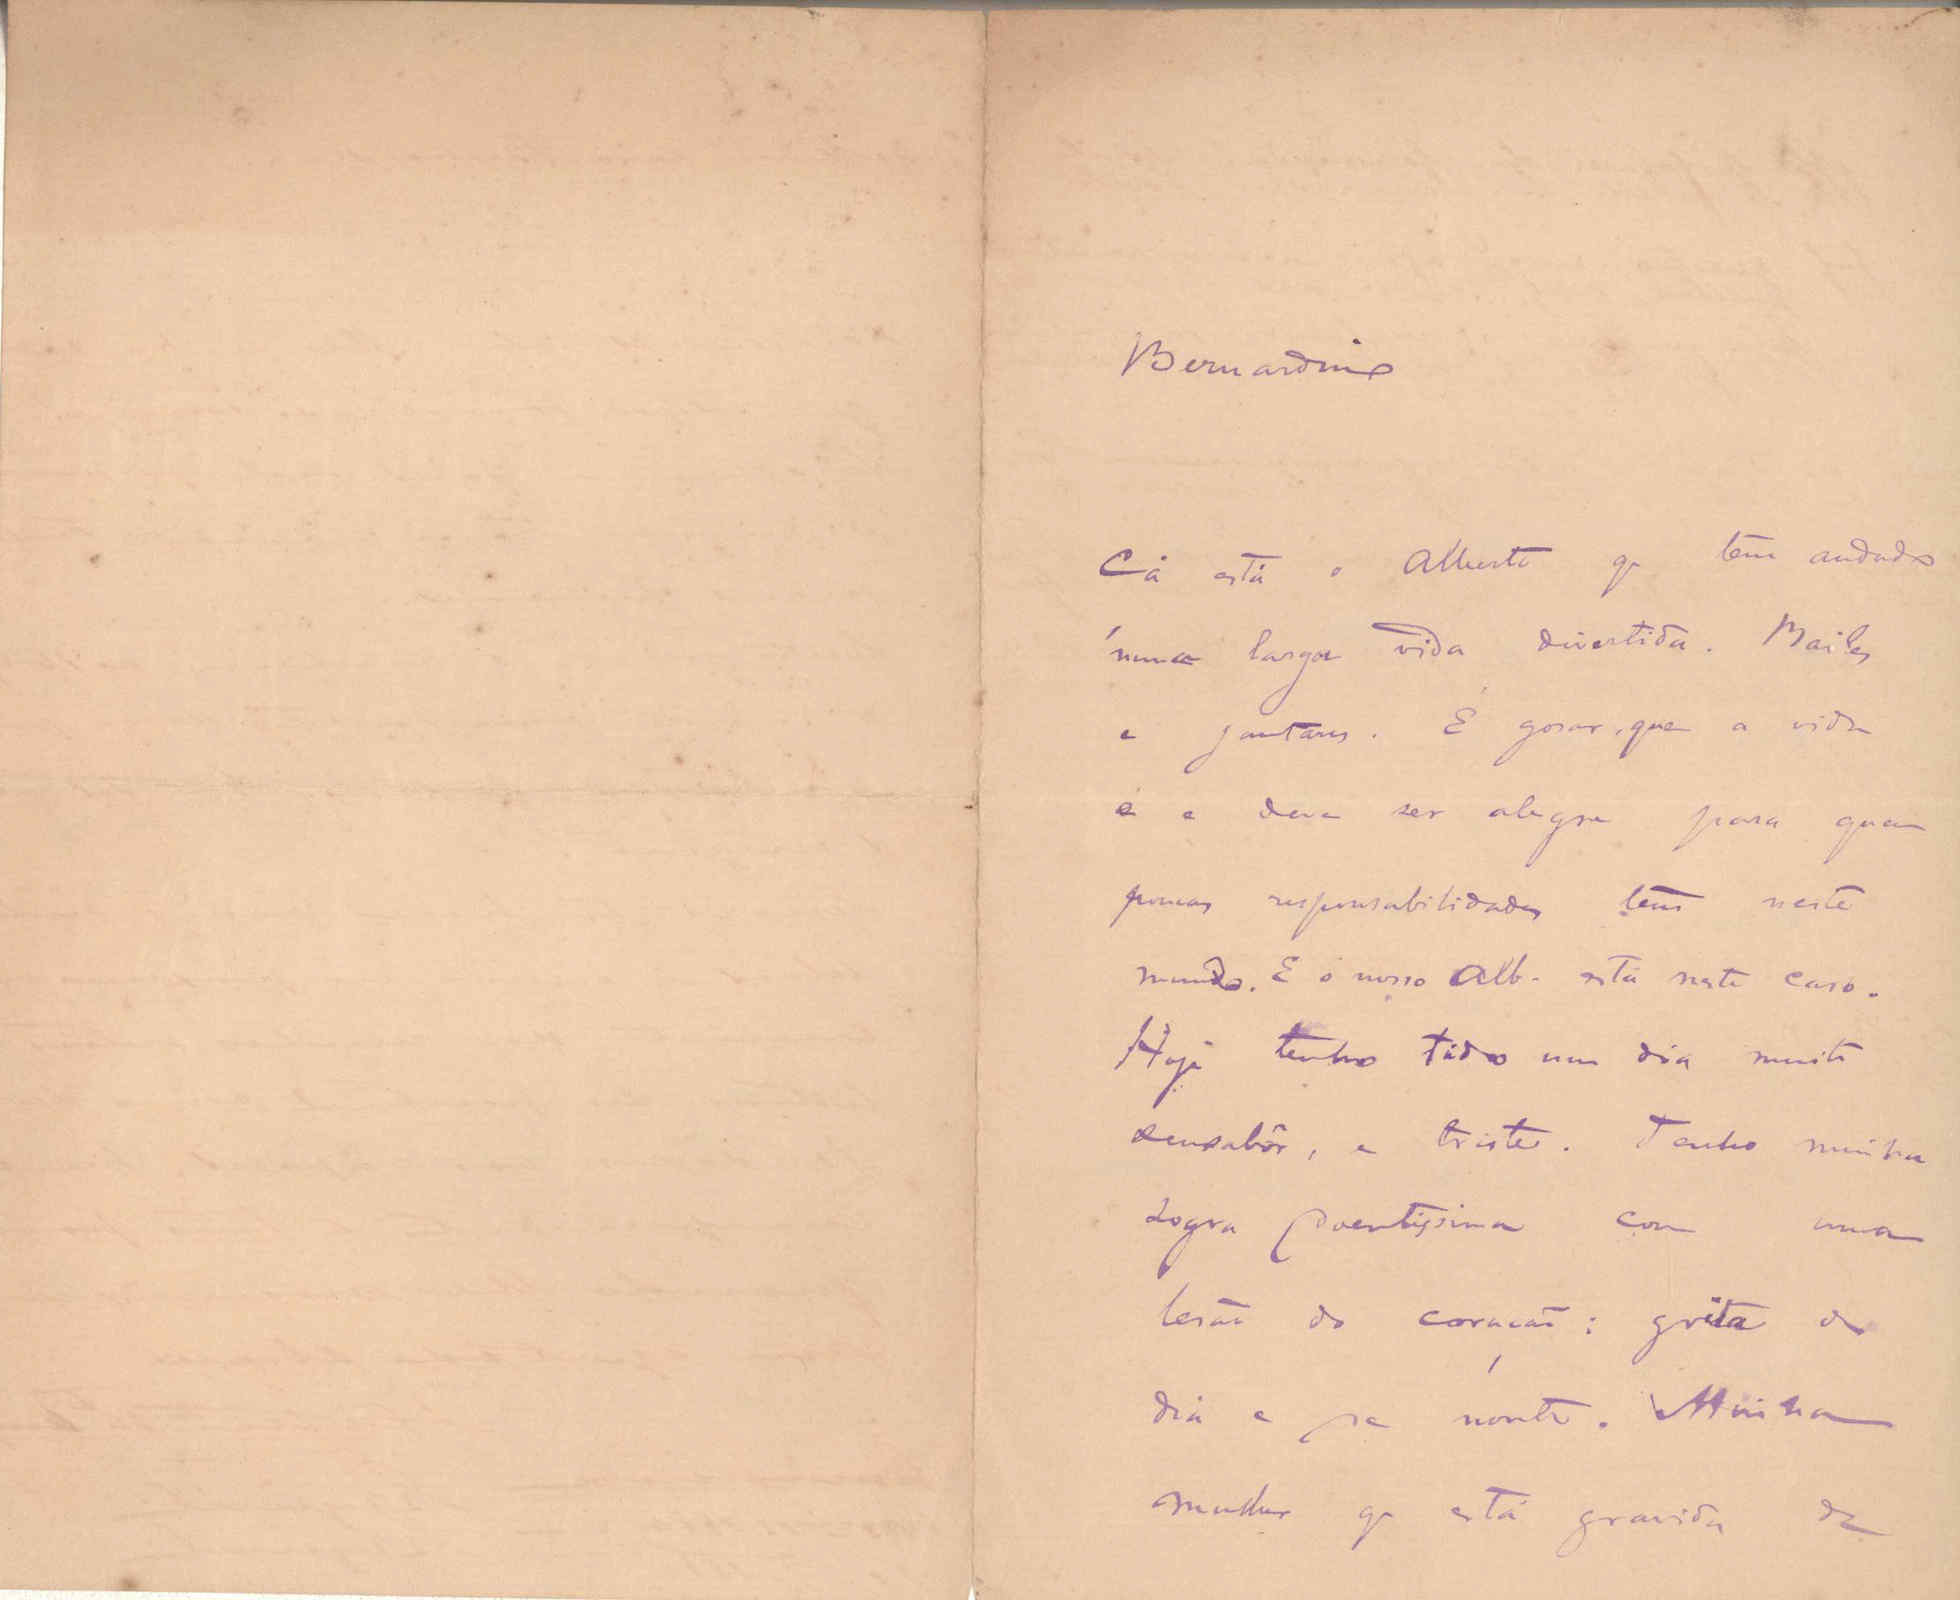 Bernardino
Cá está o Alberto q tem andado
n'uma larga vida divertida. Bailes
e jantares. É gosar, que a vida
é e deve ser alegre para quem
poucas responsabilidades tem neste
mundo. E o nosso Alb. está neste caso.
Hoje tenho tido um dia muito
semsabôr, e triste. Tenho minha
sogra doentissima com uma
lesão do coração: grita de
dia e de noute. Minha
mulher q está gravida de